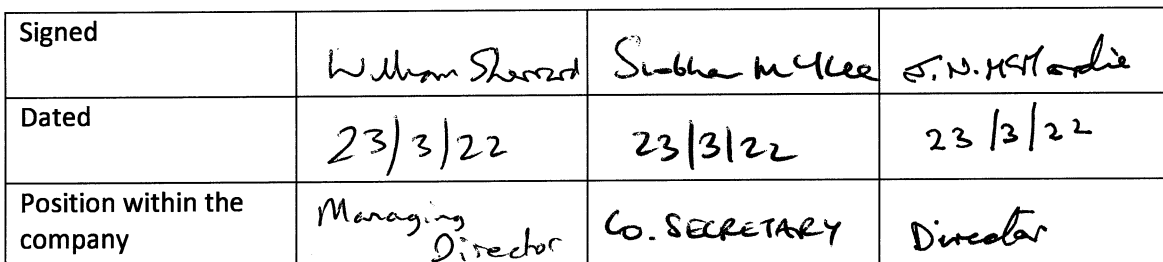 Signed William Sherrard Siobhan McKee J.N. McHardie
Dated 23/3/22 23/3/22 23/3/22
Position within the company Managing Director Co. SECRETARY Director